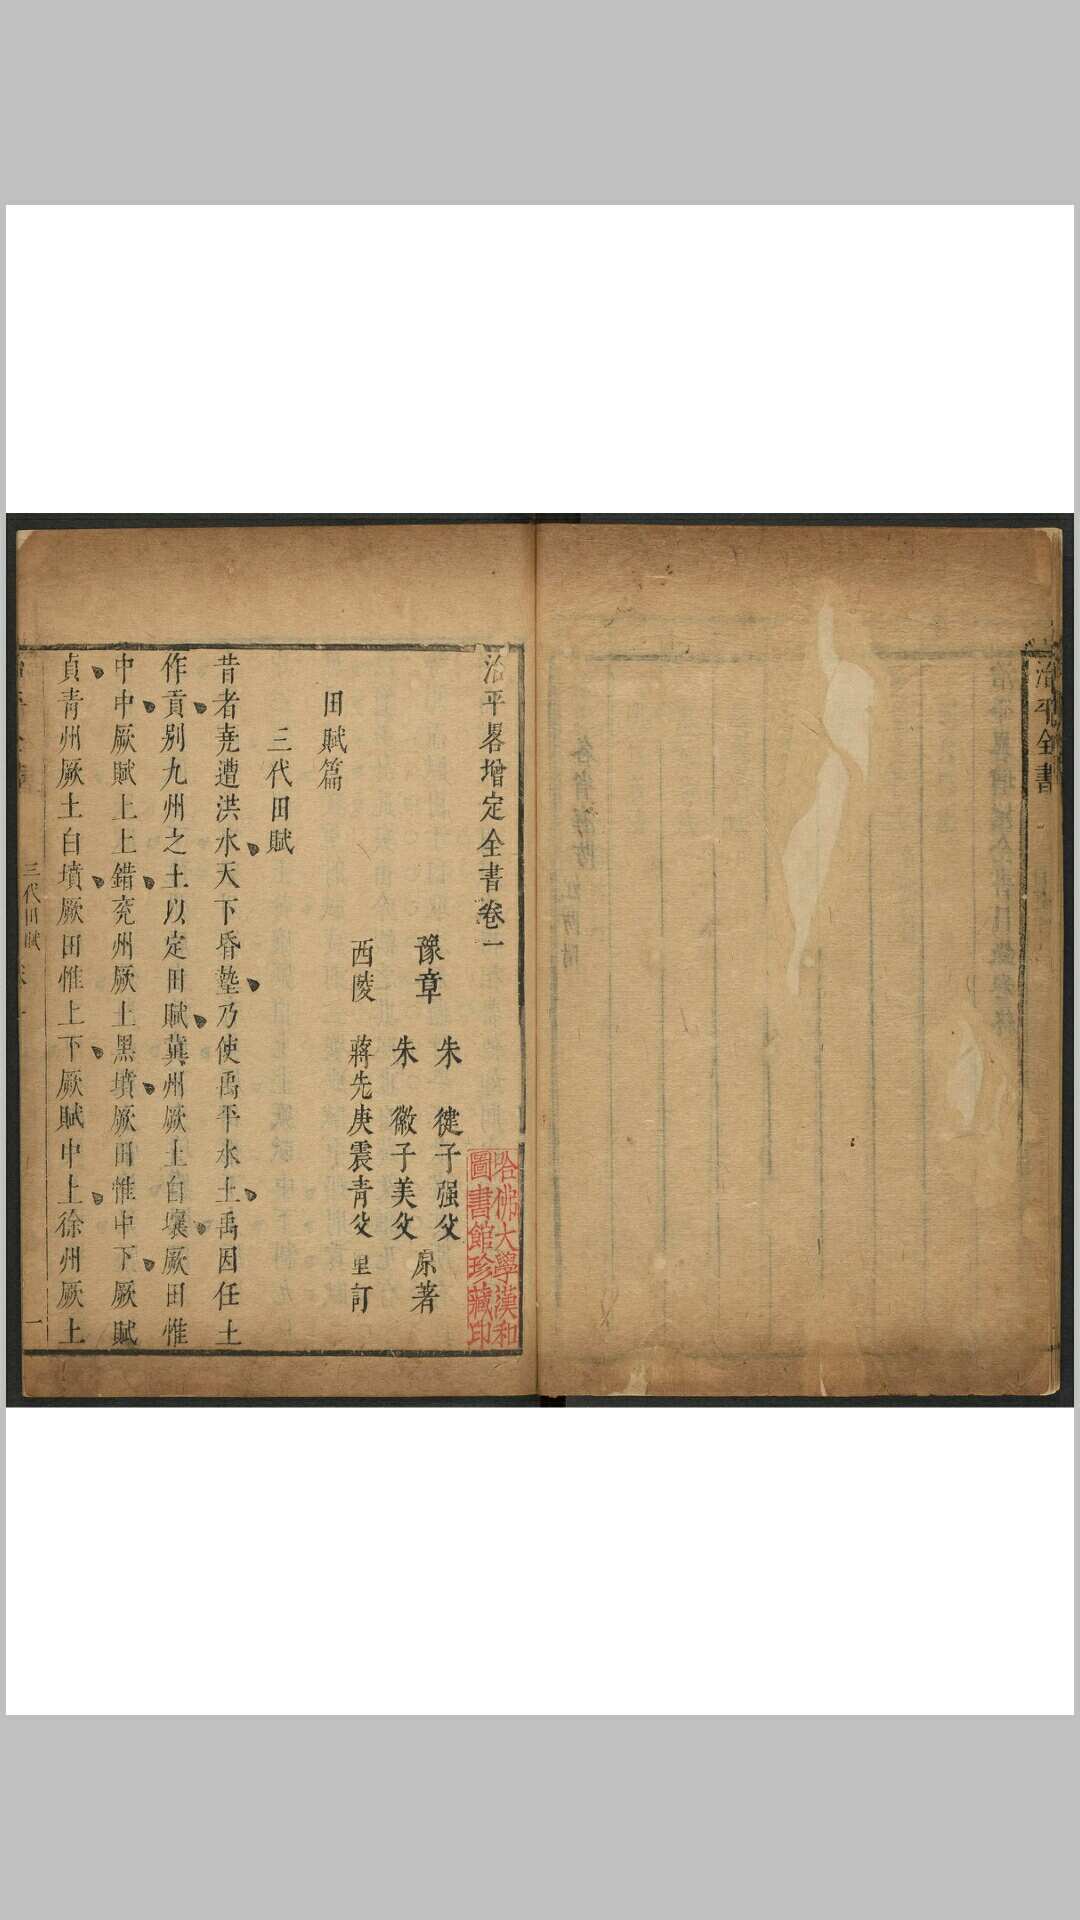 治平全書
治平畧增定全書卷一
豫章
朱 健子强父
朱 徽子美父
原著
西陵 蔣先庚震青父 重訂
田賦篇
三代田賦
昔者堯遭洪水天下昏墊乃使禹平水土禹因任土
作貢别九州之土以定田賦冀州厥土白壤厥田惟
中中厥賦上上錯兖州厥土黑墳厥田惟中下厥賦
貞青州厥土白墳厥田惟上下厥賦中上徐州厥土
三代田賦
一
哈佛大學漢和
圖書館珍藏印